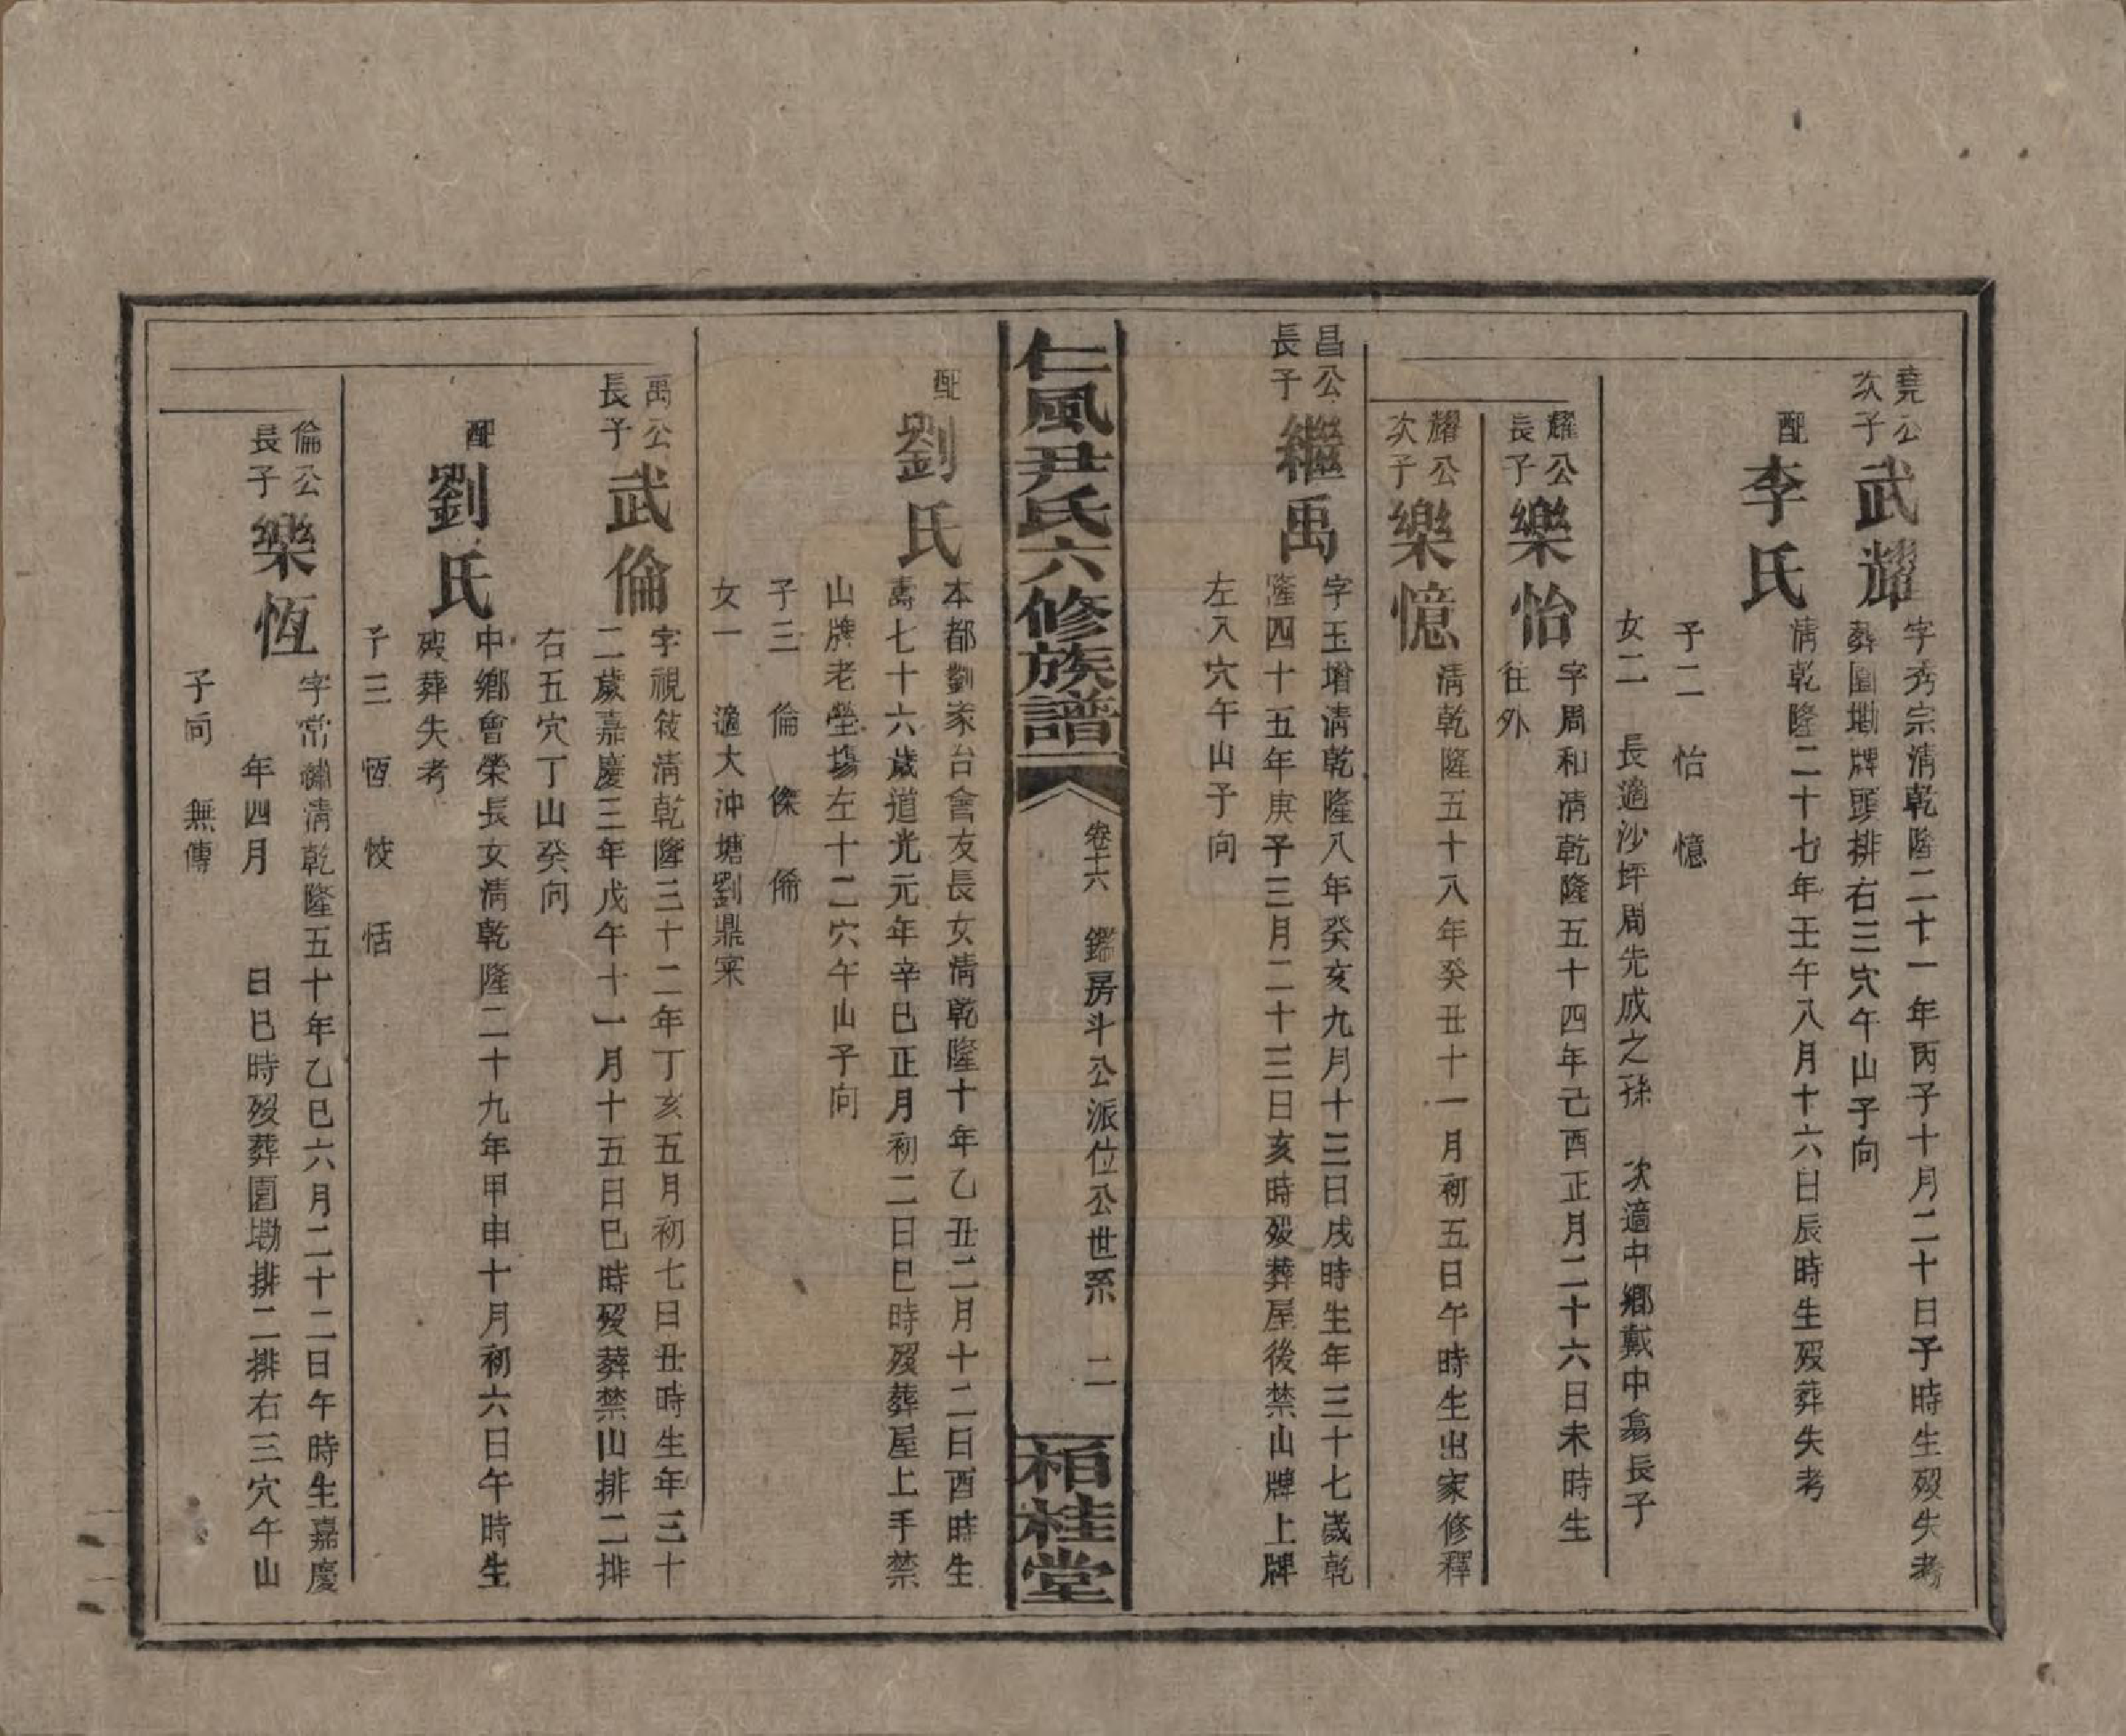 堯公次子
武耀
字秀宗清乾隆二十一年丙子十月二十日子時生歿失考
葬園墈牌頭排右三穴午山子向
配
李氏
清乾隆二十七年壬午八月十六日辰時生歿葬失考
子二 怡 憶
女二 長適沙坪周先成之孫 次適中鄉戴中翕長子
耀公長子
樂怡
字周和清乾隆五十四年己酉正月二十六日未時生
往外
耀公次子
樂憶
清乾隆五十八年癸丑十一月初五日午時生出家修釋
昌公長子
繼禹
字玉增清乾隆八年癸亥九月十三日戌時生年三十七歲乾
隆四十五年庚子三月二十三日亥時歿葬屋後禁山牌上牌
左入穴午山子向
仁風尹氏六修族譜
卷十六 鑑房斗公派位公世系 二
栢桂堂
配
劉氏
本都劉家台會友長女清乾隆十年乙丑二月十二日酉時生
壽七十六歲道光元年辛巳正月初二日巳時歿葬屋上手禁
山牌老塋塲左十二穴午山子向
子三 倫 傑 脩
女一 適大沖塘劉鼎宷
禹公長子
武倫
字視敍清乾隆三十二年丁亥五月初七日丑時生年三十
二歲嘉慶三年戊午十一月十五日巳時歿葬禁山排二排
右五穴丁山癸向
配
劉氏
中鄉會榮長女清乾隆二十九年甲申十月初六日午時生
歿葬失考
子三 恆 恔 恬
倫公長子
樂恆
字常繡清乾隆五十年乙巳六月二十二日午時生嘉慶
年四月 日巳時歿葬園墈排二排右三穴午山
子向 無傳